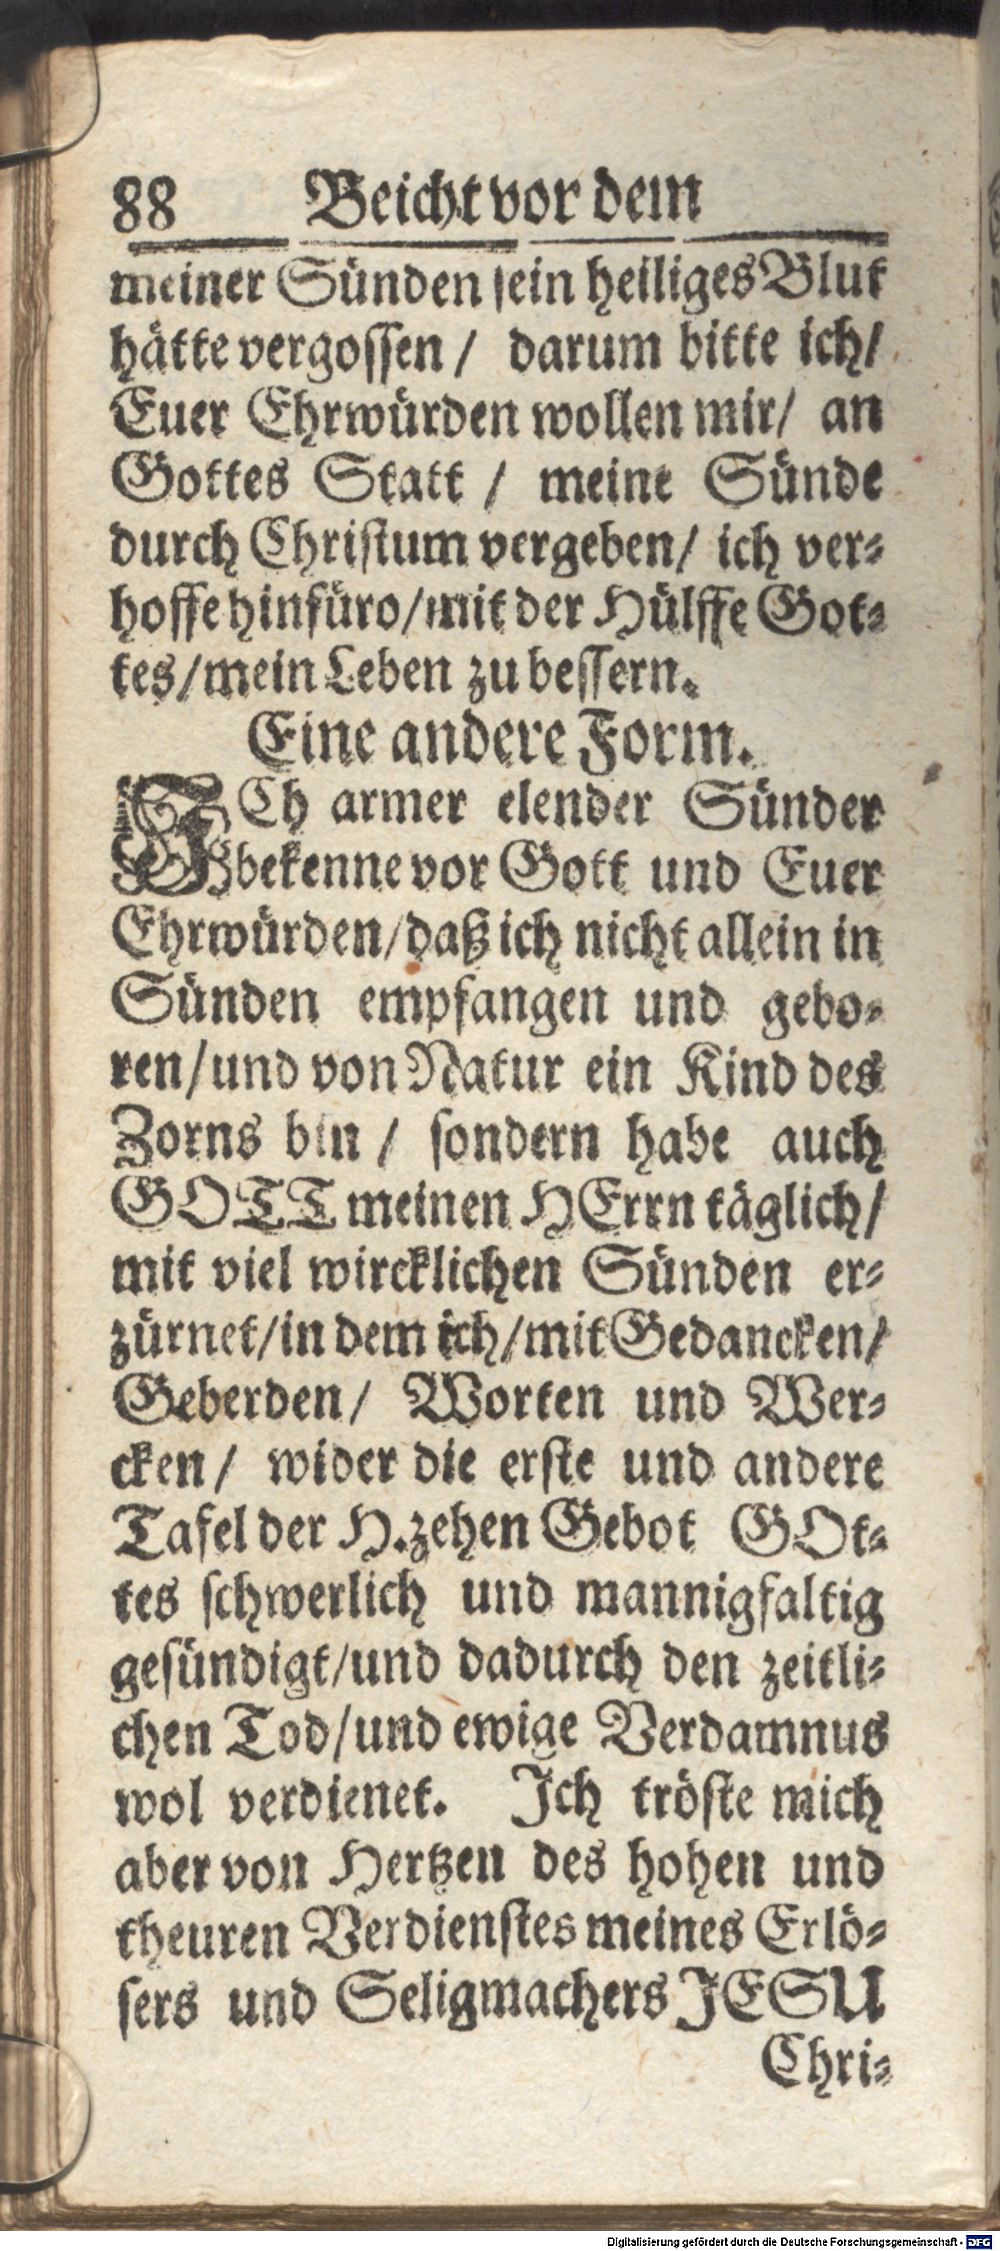 88 Beicht vor dem
meiner Sünden sein heiliges Blut
hätte vergossen / darum bitte ich/
Euer Ehrwürden wollen mir/ an
Gottes Statt / meine Sünde
durch Christum vergeben/ ich ver-
hoffe hinfüro/mit der Hülffe Got-
tes/mein Leben zu bessern.
Eine andere Form.
ICh armer elender Sünder
bekenne vor Gott und Euer
Ehrwürden/daß ich nicht allein in
Sünden empfangen und gebo-
ren/und von Natur ein Kind des
Zorns bin / sondern habe auch
GOTT meinen HErrn täglich/
mit viel wircklichen Sünden er-
zürnet/in dem ich/mit Gedancken/
Geberden/ Worten und Wer-
cken/ wider die erste und andere
Tafel der H. zehen Gebot GOt-
tes schwerlich und mannigfaltig
gesündigt/und dadurch den zeitli-
chen Tod/und ewige Verdamnus
wol verdienet. Ich tröste mich
aber von Hertzen des hohen und
theuren Verdienstes meines Erlö-
sers und Seligmachers JESU
Chri-
Digitalisierung gefördert durch die Deutsche Forschungsgemeinschaft - DFG